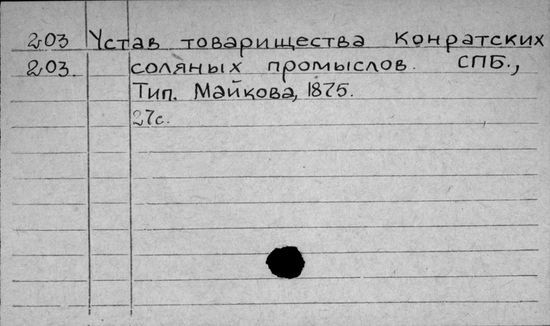 203 Устав товарищества Конратских
203. соляных промыслов. СПБ.,
Тип. Майкова, 1875.
27с.